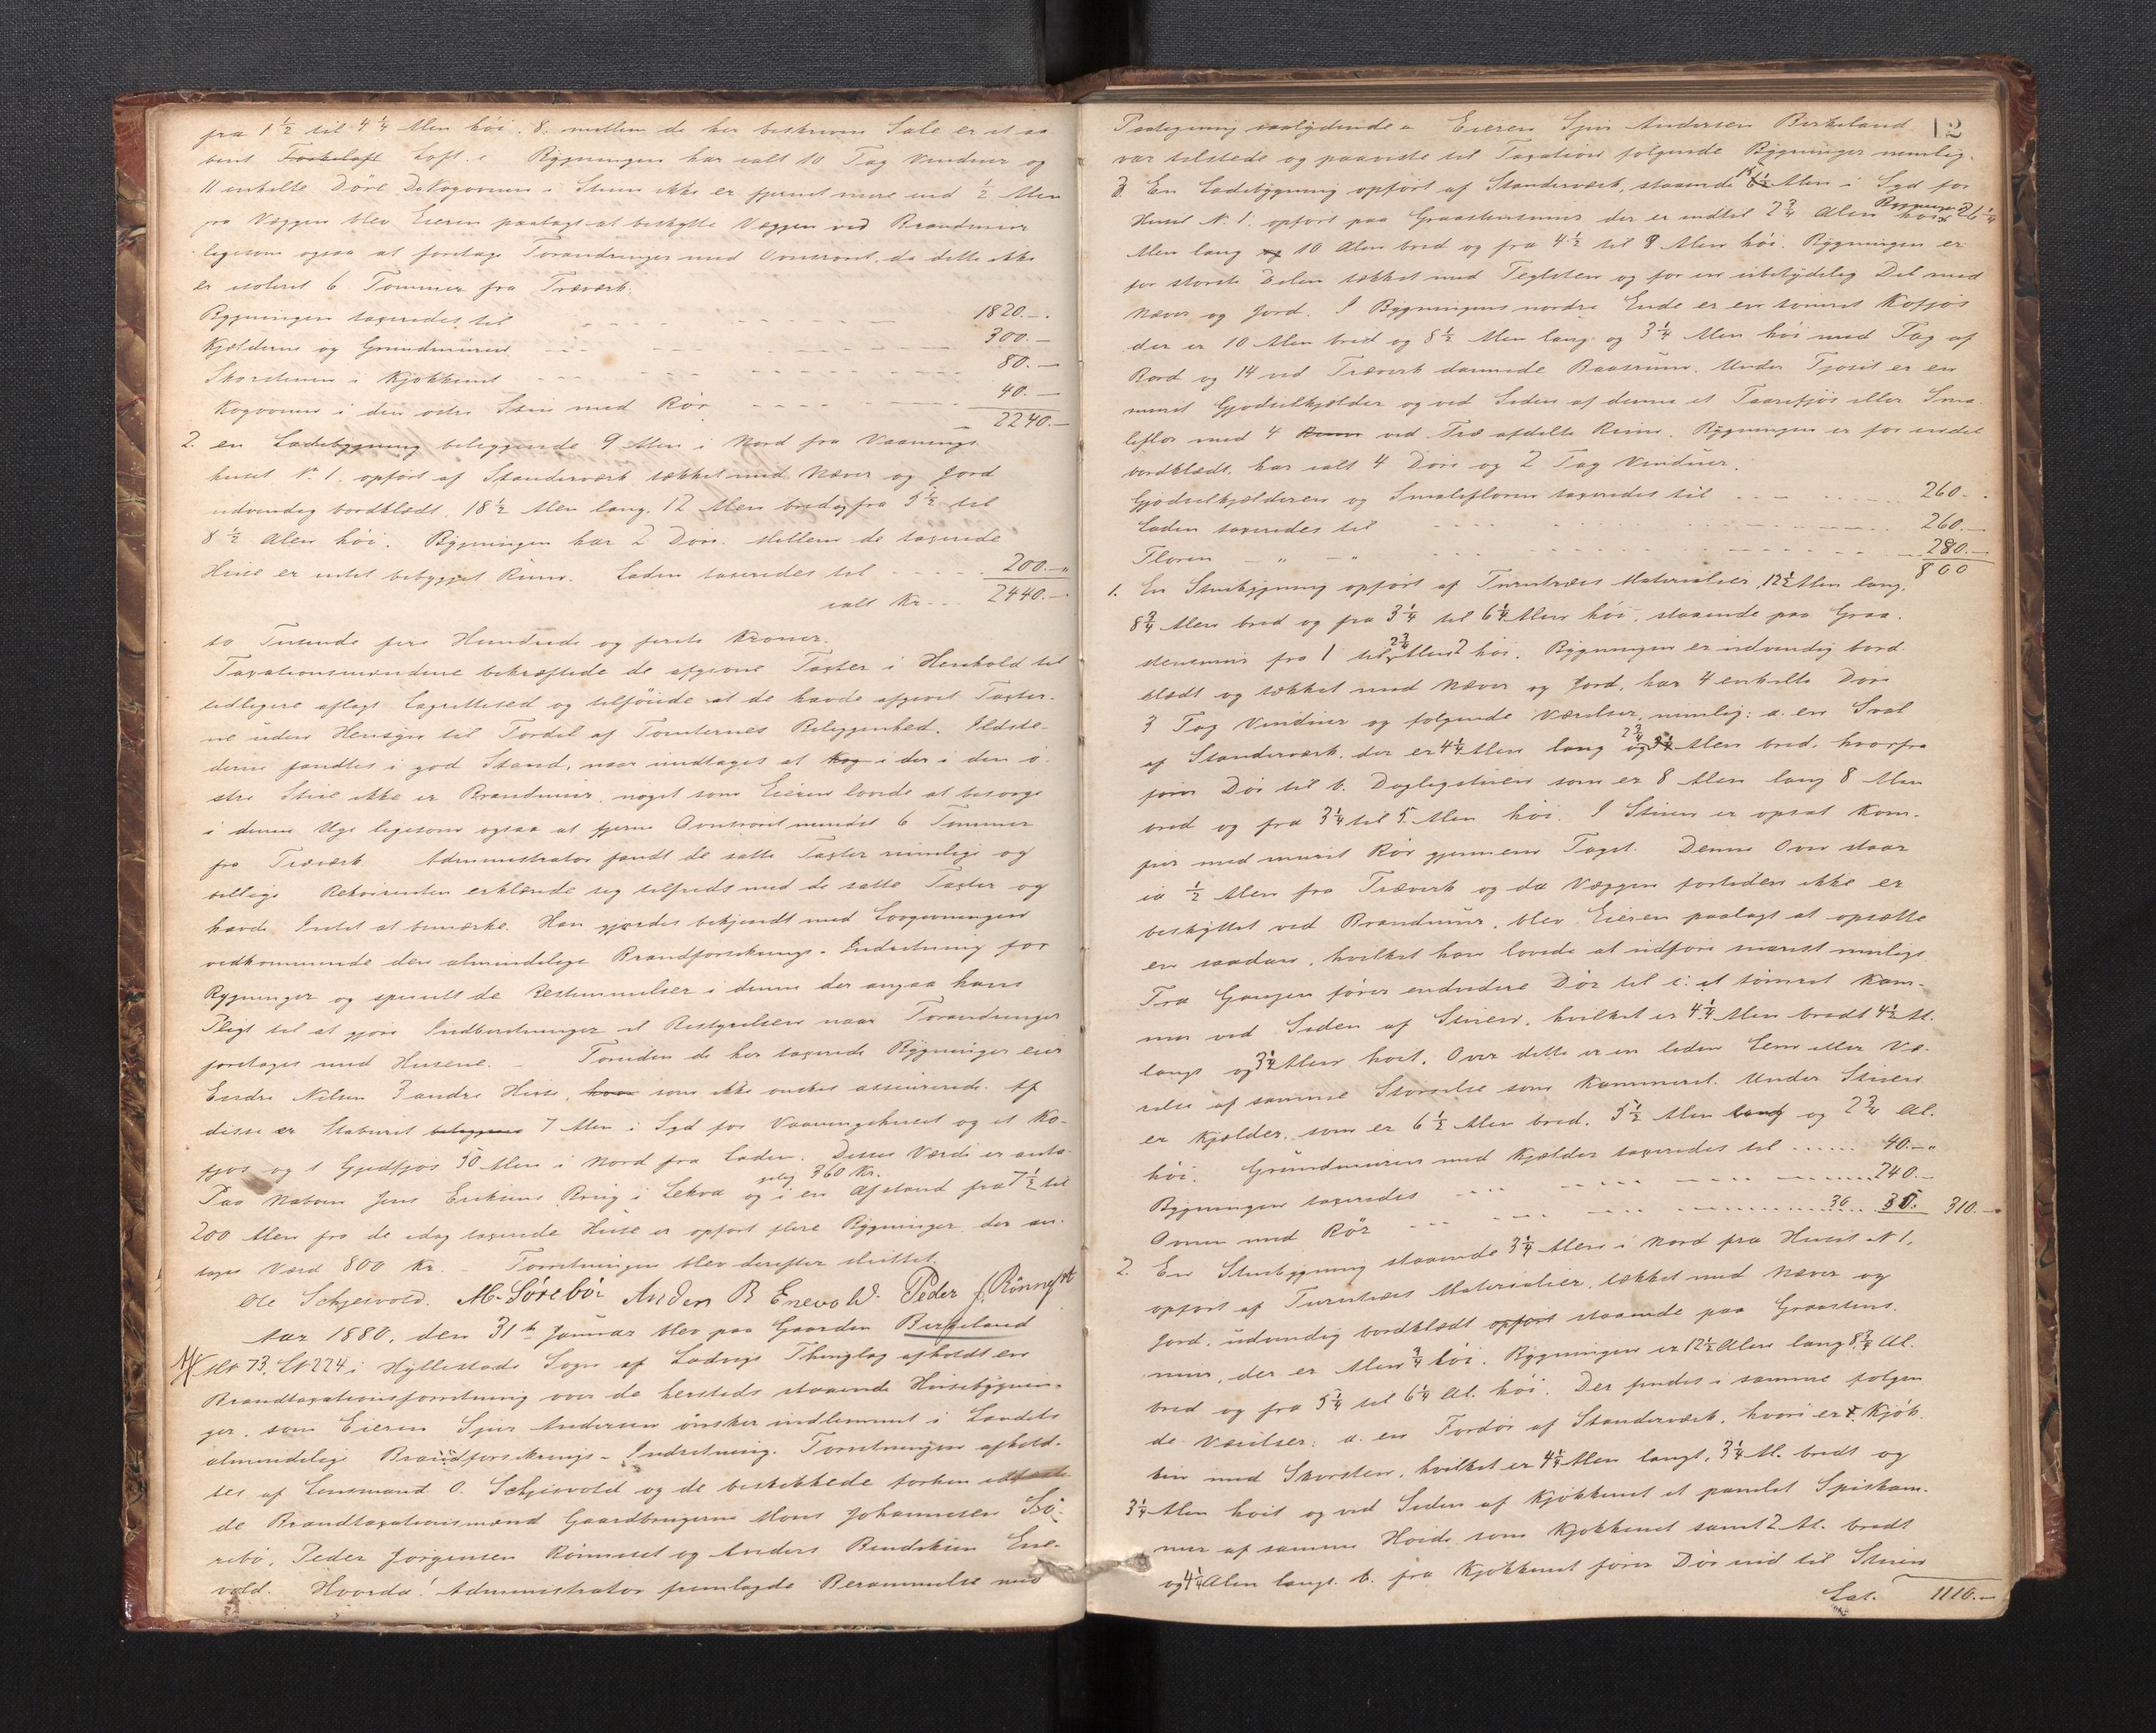 fra 1 1/2 til 4 1/4 Alen høi. 8. mellem de her beskrevne Sale er et aa
bent Loft. Bygningen har ialt 10 Fag Vinduer og
11 enkelte Døre. Da Kogovnen i Stuen ikke er fjernet mere end 1/2 Alen
fra Væggen blev Eieren paalagt at beskytte Væggen ved Brandmuur
ligesom ogsaa at foretage Forandringer med Ovnsrøret, da dette ikke
er isoleret 6 Tommer fra Træværk.
Bygningen taxeredes til 1820.-
Kjælderne og Grundmuren 300.-
Skorstenen i Kjøkkenet 80.-
Kogovnen i den østre Stue med Rør 40.-
2240.-
2. en Ladebygning beliggende 9 Alen i Nord fra Vaanings
huset No 1, opført af Standerværk tækket med Næver og Jord
udvendig bordklædt, 18 1/2 Alen lang, 12 Alen bred og fra 5 1/2 til
8 1/2 Alen høi. Bygningen har 2 Døre. Mellem de taxerede
Huse er intet bebygget Rum. Laden taxeredes til 200.-
ialt Kr. 2440.-
to Tusende fire Hundrede og firti Kroner.
Taxationsmændene bekræftede de afgivne Taxter i Henhold til
tidligere aflagt Lagrettesed og tilføiede at de havde afgivet Taxter-
ne uden Hensyn til Fordel af Tomternes Beliggenhed. Ildste-
derne fandtes i god Stand, naar undtages at der i den ø-
stre Stue ikke er Brandmuur, noget som Eieren lovede at besørge
i denne Uge ligesom ogsaa at fjerne Ovnsrøret mindst 6 Tommer
fra Træværk. Administrator fandt de satte Taxter rimelige og
billige. Rekvirenten erklærede sig tilfreds med de satte Taxter og
havde Intet at bemærke. Han gjordes bekjendt med Lovgivningen
vedkommende den almindelige Brandforsikrings-Indretning for
Bygninger og specielt de Bestemmelser i denne der angaa hans
Pligt til at gjøre Indberetninger til Bestyrelsen naar Forandringer
foretages med Husene. Foruden de her taxerede Bygninger eier
Endre Nilsen 3 andre Huse, som ikke ønskes assurerede. Af
disse er Staburet 7 Alen i Syd for Vaaningshuset og et Ko-
fjøs og 1 Gjedfjøs 50 Alen i Nord fra Laden. Disses Værdi er anta-
gelig 360 Kr.
Paa Naboen Jens Eriksens Brug i Lekva og i en Afstand fra 7 1/2 til
200 Alen fra de idag taxerede Huse er opført flere Bygninger, der an-
tages Værd 800 Kr. Forretningen blev derefter sluttet.
Ole Schjesvold. M. Sørebø Anders B Enevold. Peder J. Rønnset
Aar 1880, den 31te Januar blev paa Gaarden Birkeland
M. No 73, L. No 224 i Hyllestads Sogn af Ladvigs Thinglag afholdt en
Brandtaxationsforretning over de hersteds staaende Husebygnin-
ger, som Eieren Sjur Andersen ønsker indlemmet i Landets
almindelige Brandforsikrings-Indretning. Forretningen afhold-
tes af Lensmand O. Schjesvold og de beskikkede
de Brandtaxationsmænd Gaardbrugerne Mons Johannesen Sø-
rebø, Peder Jørgensen Rønneset og Anders Bendiksen Ene-
vold. Hvorda: Administrator fremlagde Berammelse med
12
Paategning saalydende: Eieren Sjur Andersen Birkeland
var tilstede og paaviste til Taxation følgende Bygninger nemlig:
3. En Ladebygning opført af Standerværk, staaende Alen i Syd for
Huset No 1, opført paa Graastensmuur der er indtil 2 3/4 Alen høi. Bygningen er 26 1/4
Alen lang 10 Alen bred og fra 4 1/2 til 8 Alen høi. Bygningen er
for største Delen tækket med Teglsten og for en ubetydelig Del med
Næver og Jord. I Bygningens nordre Ende er en tømret Kofjøs
der er 10 Alen bred og 8 1/2 Alen lang og 3 1/4 Alen høi med Tag af
Bord og 14 ved Træværk dannede Baasrum. Under Fjøset er en
muret Gjødselkjælder og ved Siden af denne et Faarefjøs eller Sma-
leflor med 4 ved Træ afdelte Rum. Bygningen er for endel
bordklædt, har ialt 4 Døre og 2 Fag Vinduer.
Gjødselkjælderen og Smalefloren taxeredes til 260.-
Laden taxeredes til 260.-
Floren " " 280.-
800
1. En Stuebygning opført af Furutræes Materialier, 12 1/2 Alen lang,
8 3/4 Alen bred og fra 3 1/4 til 6 1/4 Alen høi, staaende paa Graa-
stensmuur fra 1 til 2 3/4 Alen høi. Bygningen er udvendig bord-
klædt og tækket med Næver og Jord, har 4 enkelte Døre
3 Fag Vinduer og følgende Værelser, nemlig: a. en Sval
af Standerværk, der er 4 1/4 Alen lang og 2 3/4 Alen bred, hvorfra
fører Dør til b. Dagligstuen som er 8 Alen lang 8 Alen
bred og fra 3 1/4 til 5 Alen høi. I Stuen er opsat Kom-
fur med muret Rør gjennem Taget. Denne Ovn staar
ca 1/2 Alen fra Træværk og da Væggen fortiden ikke er
beskyttet ved Brandmuur, blev Eieren paalagt at opsætte
en saadan, hvilket han lovede at udføre snarest muligt.
Fra Gangen fører endvidere Dør til c. et tømret Kam-
mer ved Siden af Stuen, hvilket er 4 1/4 Alen bredt 4 1/2 Al.
langt og 3 1/4 Alen høit. Over dette er en liden Lem eller Væ-
relse af samme Størrelse som Kammeret. Under Stuen
er Kjælder, som er 6 1/2 Alen bred, 5 1/2 Alen lang og 2 3/4 Al.
høi. Grundmuren med Kjælder taxeredes til 40.-
Bygningen taxeredes 240.-
Ovnen med Rør 30 30. 310.-
2. En Stuebygning staaende 3 1/4 Alen i Nord fra Huset No 1,
opført af Furutræes Materialier, tækket med Næver og
Jord, udvendig bordklædt staaende paa Graastens-
muur, der er Alen 3/4 høi. Bygningen er 12 1/2 Alen lang 8 3/4 Al.
bred og fra 5 1/4 til 6 1/4 Al. høi. Der findes i samme følgen
de Værelser: a. en Fordør af Standerværk, hvori er Kjøk-
ken med Skorsten, hvilket er 4 1/4 Alen langt, 3 1/4 Al. bredt og
3 1/4 Alen høit og ved Siden af Kjøkkenet et panelet Spiskam-
mer af samme Høide som Kjøkkenet samt 2 Al. bredt
og 4 1/4 Alen langt. b. fra Kjøkkenet fører Dør ind til Stuen
Lat. 1110.-